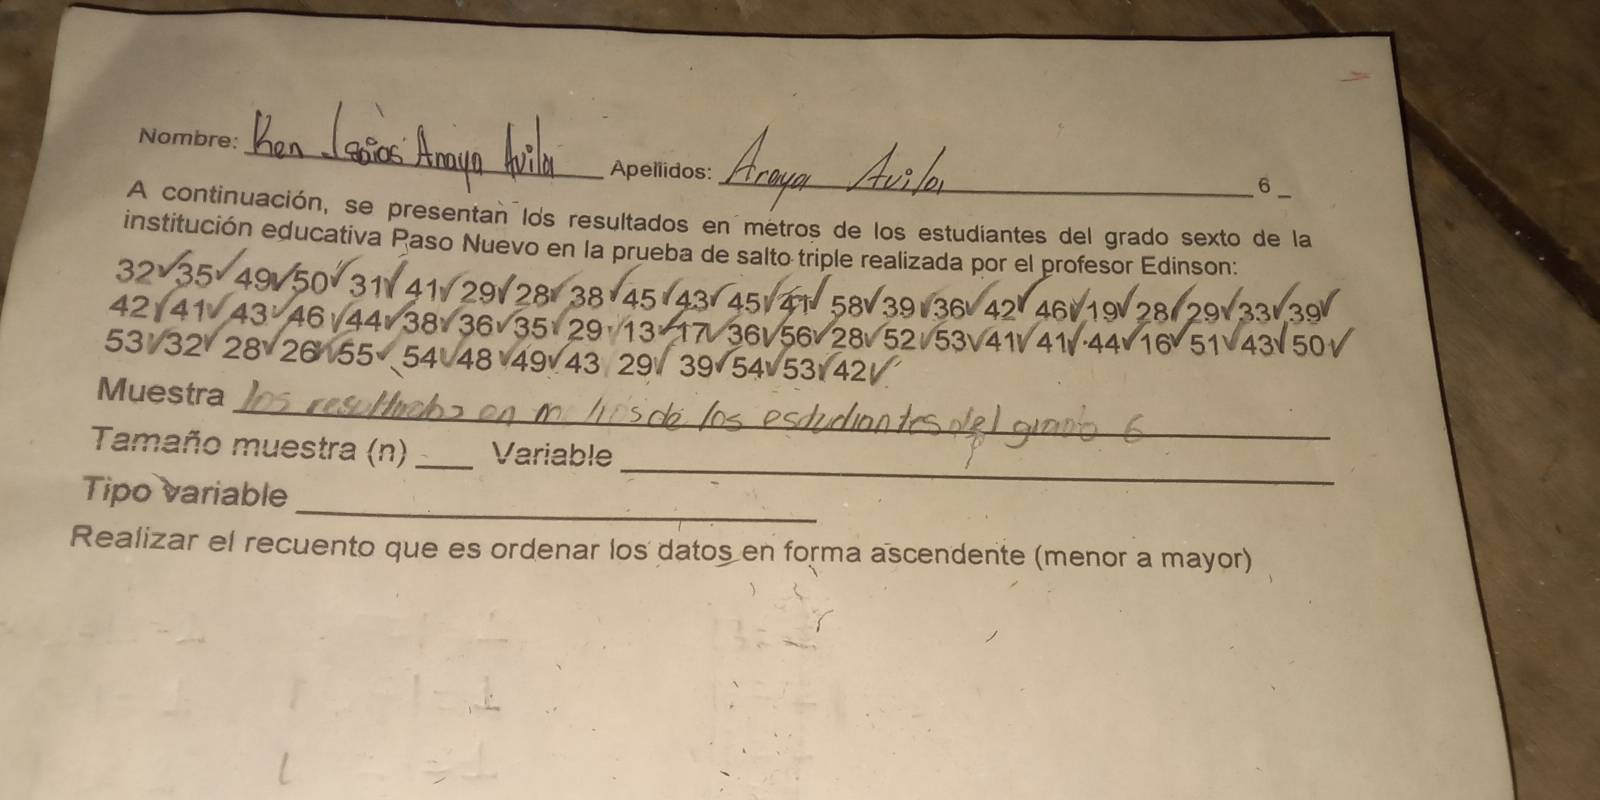 Nombre: Ken Isaías Anaya Avila Apellidos: Araya Avila 6
A continuación, se presentan los resultados en metros de los estudiantes del grado sexto de la
institución educativa Paso Nuevo en la prueba de salto triple realizada por el profesor Edinson:
32 35 49 50 31 41 29 28 38 45 43 45 41 58 39 36 42 46 19 28 29 33 39
42 41 43 46 44 38 36 35 29 13 17 36 56 28 52 53 41 41 44 16 51 43 50
53 32 28 26 55 54 48 49 43 29 39 54 53 42
Muestra los resultados en de los estudiantes del grado 6
Tamaño muestra (n) ____ Variable
Tipo variable
Realizar el recuento que es ordenar los datos en forma ascendente (menor a mayor)